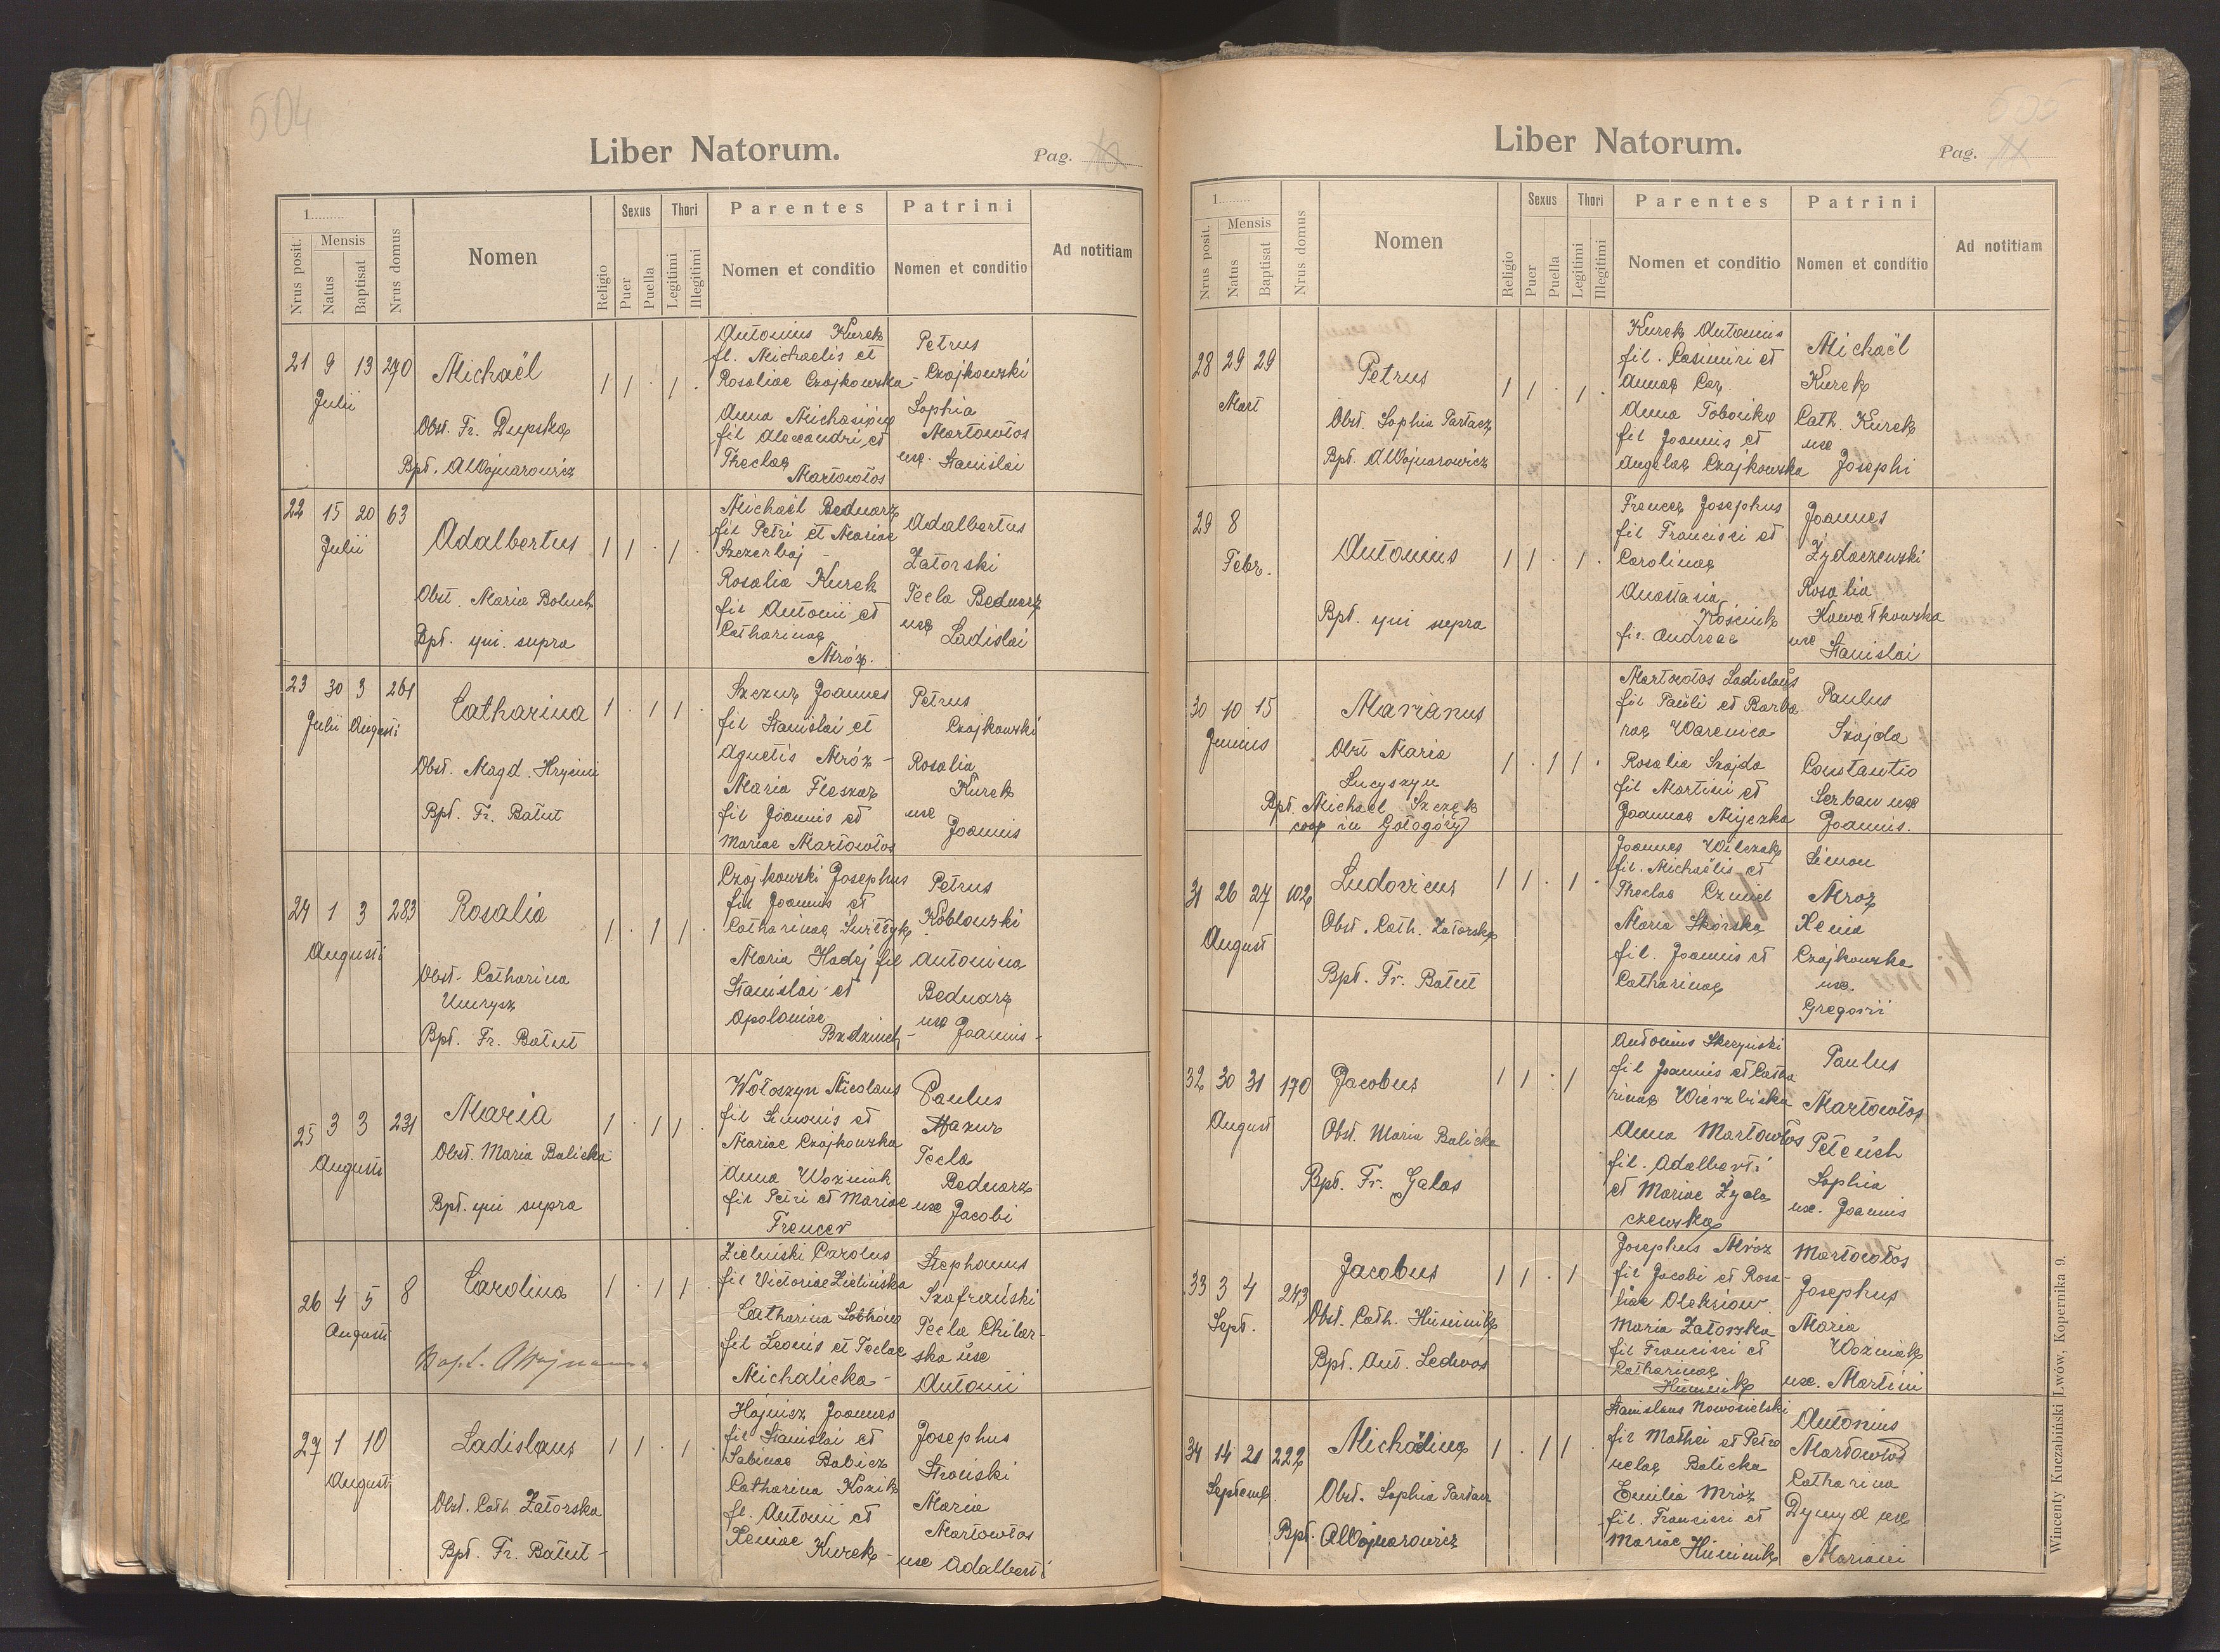 504
Liber Natorum.
Pag.
1
Nrus posit.
Mensis
Natus
Baptisat
Nrus domus
Nomen
Religio
Sexus
Puer
Puella
Thori
Legitimi
Illegitimi
Parentes
Nomen et conditio
Patrini
Nomen et conditio
Ad notitiam
21 9 13 270
Julii
Michaël
Obst. Fr. Dupska
Bpt. AWojnarowicz
1 1 . 1 .
Antonius Kurek
fl. Michaelis et
Rosaliae Czajkowska
Anna
fil Alexandri et
Theclae
Martowłos
Petrus
Czajkowski
Sophia
Martowłos
ux. Stanislai
22 15 20 63
Julii
Adalbertus
Obst. Maria Boluch
Bpt. qui supra
1 1 . 1 .
Michaël Bednarz
fil Petri et Mariae
Szczerbaj
Rosalia Kurek
fil Antonii et
Catharinae
Mróz.
Adalbertus
Zatorski
Tecla Bednarz
uxe
Ladislai
23 30 3 261
Julii Augusti
Catharina
Obst. Magd. Hrycini
Bpt. Fr. Batut
1 . 1 1 .
Szczur Joannes
fil Stanislai et
Agnetis Mróz
Maria Fleszar
fil Joannis et
Mariae Martowłos
Petrus
Czajkowski
Rosalia
Kurek
uxe
Joannis
24 1 3 283
Augusti
Rosalia
Obst. Catharina
Umrysz
Bpt. Fr. Batut
1 . 1 1 .
Czajkowski Josephus
fil Joannis et
Catharinae
Maria Hadej fil
Stanislai et
Apoloniae
Petrus
Kobłowski
Antonina
Bednarz
uxe Joannis
25 3 3 231
Augusti
Maria
Obst. Maria Balicka
Bpt. qui supra
1 . 1 1 .
Wołoszyn Nicolaus
fil Simonis et
Mariae Czajkowska
Anna Woźniak
fil Petri et Mariae
Frencer
Paulus
Mazur
Tecla
Bednarz
uxe Jacobi
26 4 5 8
Augusti
Carolina
1 . 1 1
Zieliński Carolus
fil Victoriae Zielińska
Catharina
fil Leonis et Teclae
Michalicka
Stephanus
Szafrański
Tecla Chilar-
ska uxe
Antonii
27 1 10
Augusti
Ladislaus
Obst. Cath Zatorska
Bpt. Fr. Batut
1 1 . 1 .
Hajnisz Joannes
fil Stanislai et
Sabinae Babicz
Catharina Kozik
fl. Antonii et
Xeniae Kurek
Josephus
Stroński
Maria
Martowłos
uxe Adalberti
505
Liber Natorum.
Pag.
1
Nrus posit.
Mensis
Natus
Baptisat
Nrus domus
Nomen
Religio
Sexus
Puer
Puella
Thori
Legitimi
Illegitimi
Parentes
Nomen et conditio
Patrini
Nomen et conditio
Ad notitiam
28 29 29
Mart
Petrus
Obst. Sophia Partacz
Bpt. AWojnarowicz
1 1 . 1 .
Kurek Antonius
fil. Casimiri et
Annae
Anna
fil Joannis et
Angelae Czajkowska
Michaël
Kurek
Cath. Kurek
uxe
Josephi
29 8
Febr.
Antonius
Bpt. qui supra
1 1 . 1 .
Frencer Josephus
fil Francisci et
Carolinae
Anastasia
Kościuk
fil. Andreae
Joannes
Żydaczewski
Rosalia
Kowałkowska
uxe
Stanislai
30 10 15
Junius
Marianus
Obst Maria
Lucyszyn
Bpt. Michael Szczęk
coop in Gołogóry
1 . 1 1 .
Martowłos Ladislaus
fil Pauli et Barba
rae Warenica
Rosalia Szajda
fil Martini et
Joannae
Paulus
Szajda
Constantia
Serban uxe
Joannis.
31 26 27 102
August
Ludovicus
Obst. Cath. Zatorska
Bpt. Fr. Batut
1 1 . 1 .
Joannes Wilczak
fil. Michaëlis et
Theclae Czmiel
Maria Skórska
fil. Joannis et
Catharinae
Simon
Mroz
Xenia
Czajkowska
uxe.
Gregorii
32 30 31 170
August
Jacobus
Obst. Maria Balicka
Bpt. Fr. Galas
1 1 . 1
Antonius Skrzyński
fil Joannis et Catha
rinae Wierzbicka
Anna Martowłos
fil. Adalberti
et Mariae Żyda
czewska
Paulus
Martowłos
Sophia
uxe. Joannis
33 3 4 243
Sept.
Jacobus
Obst. Cath. Huminik
Bpt. Ant. Ledwos
1 1 . 1
Josephus Mróz
fil Jacobi et Rosa-
liae Oleksiow
Maria Zatorska
fil Francisci et
Catharinae
Huminik
Martowłos
Josephus
Maria
Woźniak
uxe. Martini
34 14 21 222
Septemb.
Michalina
Obst. Sophia Partacz
Bpt. AWojnarowicz
1 . 1 1 .
Stanislaus Nowosielski
fil Mathei et Petro
nelae Balicka
Emilia Mróz
fil. Francisci et
Mariae Huminik
Antonius
Martowłos
Catharina
Dymyd uxe
Mariani
Wincenty Kuczabiński Lwów, Kopernika 9.